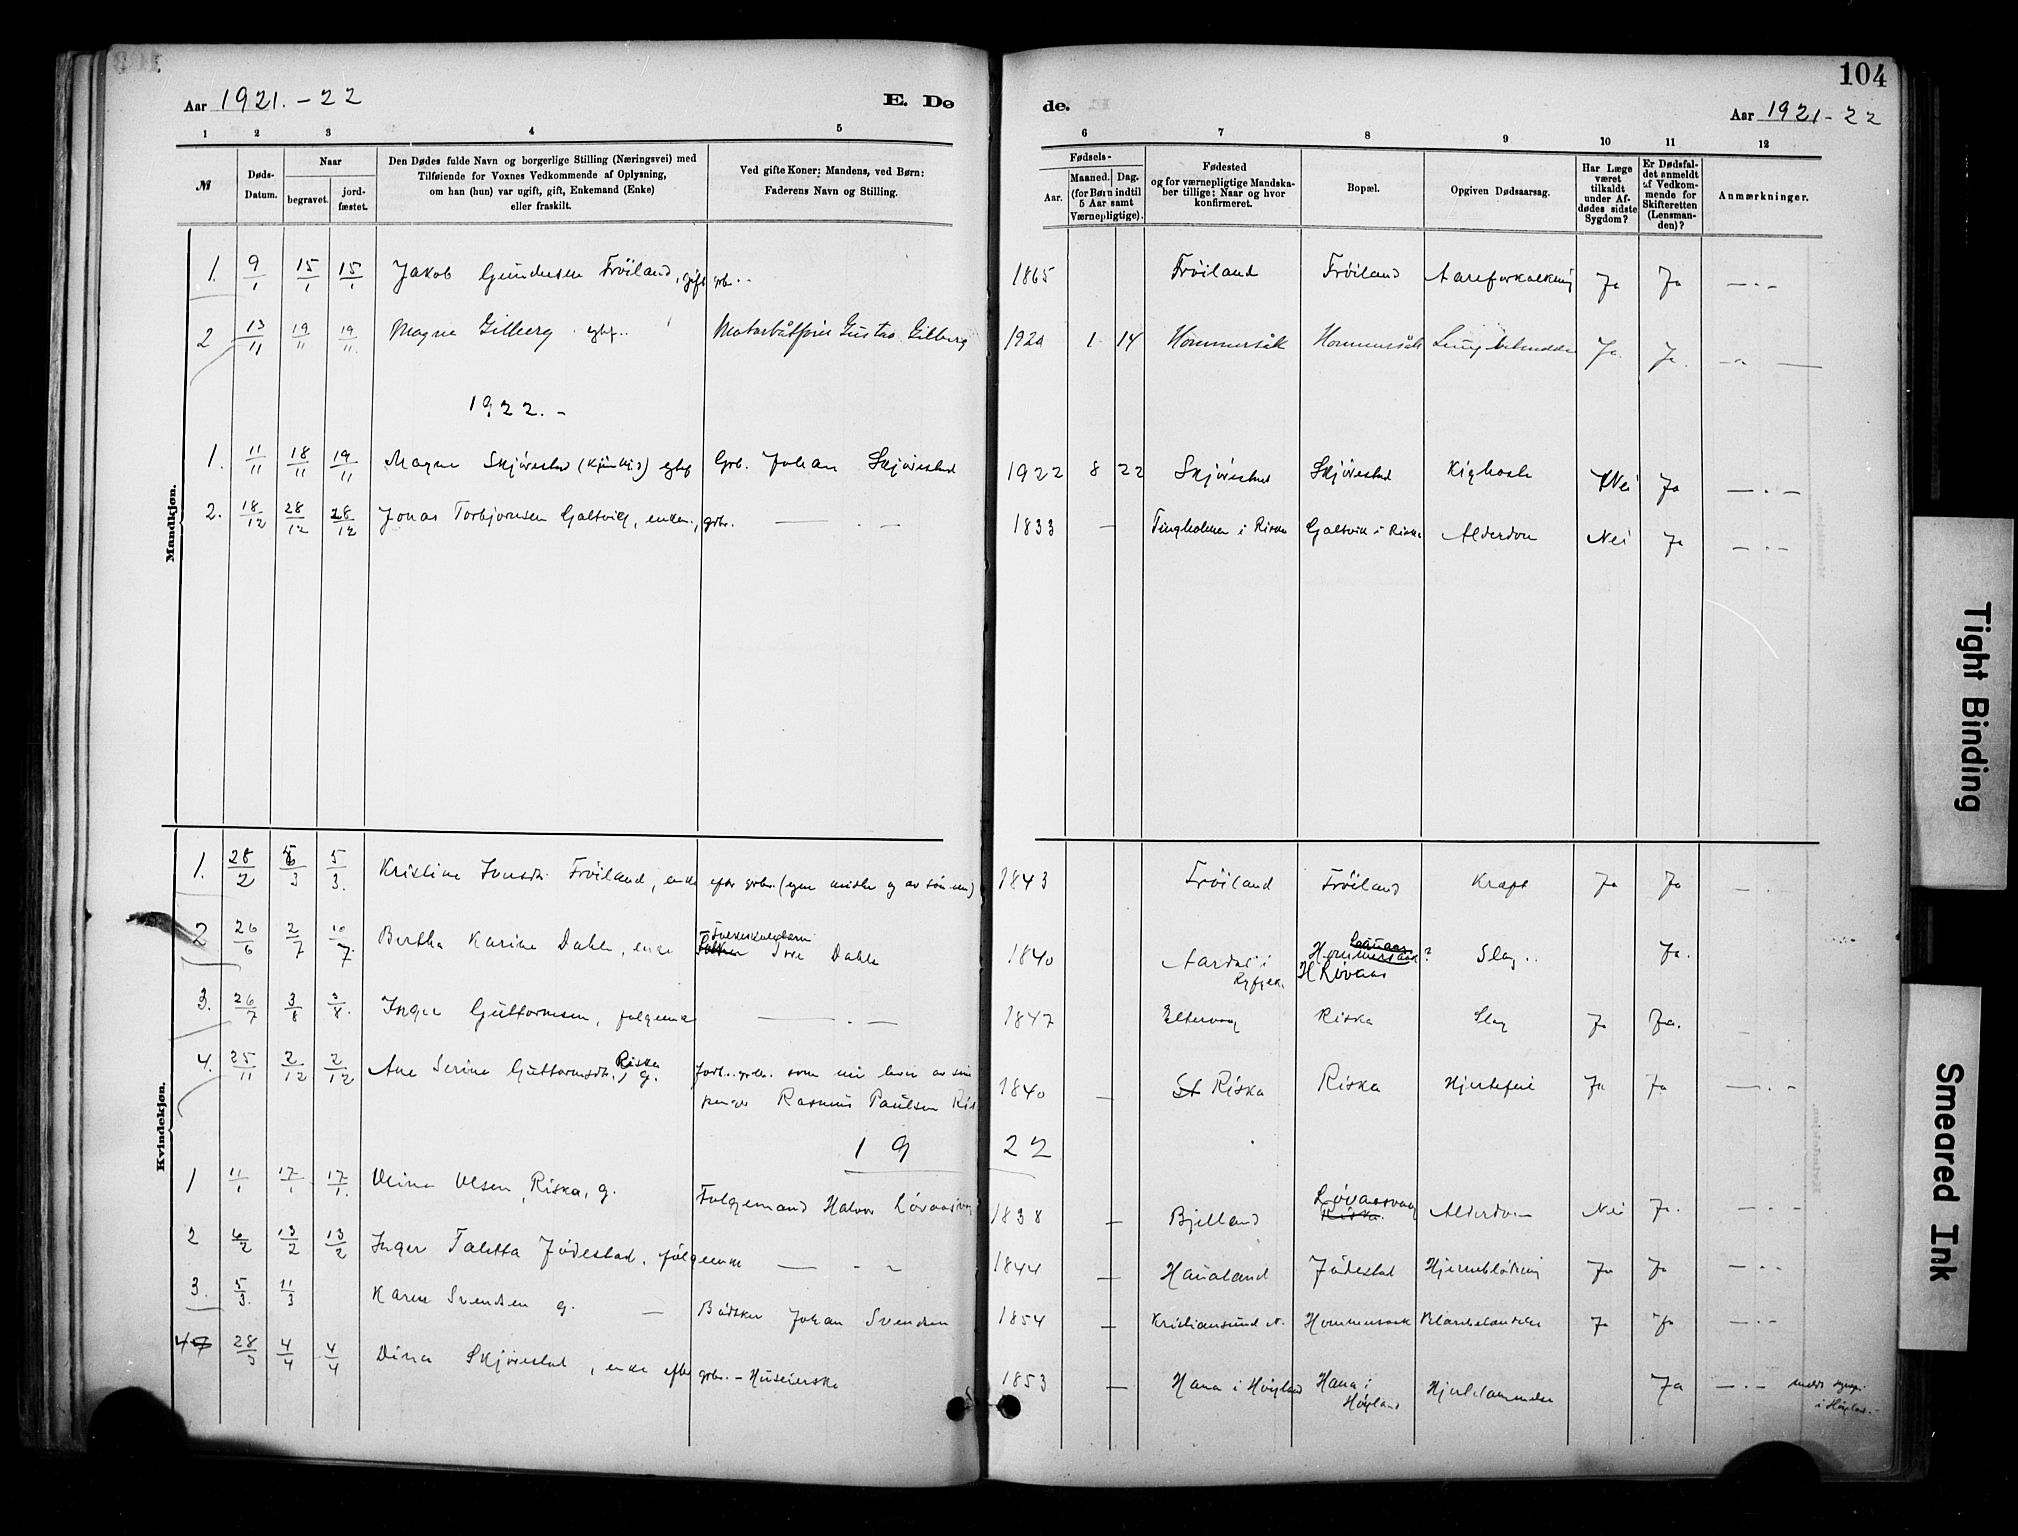 104
Aar 1921.-22
E. Dø
de.
Aar 1921-22
1 2 3 4 5
6 7 8 9 10 11 12
№
Døds-
Datum.
Naar
begravet.
jord-
fæstet.
Den Dødes fulde Navn og borgerlige Stilling (Næringsvei) med
Tilføiende for Voxnes Vedkommende af Oplysning,
om han (hun) var ugift, gift, Enkemand (Enke)
eller fraskilt.
Ved gifte Koner: Mandens, ved Børn:
Faderens Navn og Stilling.
Fødsels-
Aar.
Maaned.
Dag.
(for Børn indtil
5 Aar samt
Værnepligtige).
Fødested
og for værnepligtige Mandska-
ber tillige: Naar og hvor
konfirmeret.
Bopæl.
Opgiven Dødsaarsag.
Har Læge
været
tilkaldt
under Af-
dødes sidste
Sygdom?
Er Dødsfal-
det anmeldt
af Vedkom-
mende for
Skifteretten
(Lensman-
den)?
Anmærkninger.
Mandkjøn.
1. 9/1 15/1 15/1 Jakob Gundersen Frøiland, gift grbr. 1865 Frøiland Frøiland Aareforkalkning Ja Ja — . —
2 13/11 19/11 19/11. Magne Gilberg Gustav Gilberg 1920 1 14 Hommersåk Hommersåk Ja. Ja.
1922. -
1. 11/11 18/11 19/11 Magne Skjørestad Grb. Johan Skjørestad 1922 8 22 Skjørestad Skjørestad Kighoste Nei Ja — . —
2. 18/12 28/12 28/12 Jonas Torbjørnsen Galtvik, enkem., grbr. — . — 1833 — i Riska Galtvik i Riska Alderdom Nei Ja — . —
Kvindekjøn.
1. 28/2 5/3 5/3. Kristine Frøiland, enke efter grbr. 1843 Frøiland Frøiland Kræft Ja Ja — .
2 26/6 2/7 10/7. Bertha Karine Dahle, enke Dahle 1840 Aardal i Ryfylke. Hommersaak? Slag .. Ja.
3. 26/7 3/8 3/8. Inger Guttormsen, folgemk — . — 1847 Eltervag Riska Slag Ja Ja. —
4. 25/11 2/12 2/12 Ane Serine Guttormsdtr. Riska, g. som av sine
penger Rasmus Paulsen Ris 1840 — St Riska Riska Hjertefeil Ja Ja — . —
19 22
1 11/1 17/1 17/1. Olsen, Riska, g. Folgemand Halvor Løvaasvag 1838 — Bjelland Løvaasvag Riska. Alderdom Nei Ja. — . —
2 6/2 13/2 13/2 Inger Taletta Jødestad, følgemk — . — 1844 — Haualand Jødestad Hjerneblødning Ja Ja — . —
3. 5/3. 11/3 Karen Svendsen g. — Bødker Johan Svendsen 1854 — Kristiansund N. Hommersaak Ja Ja — . —
4 28/3 4/4 4/4 Dina Skjørestad, enke efter grbr. - Huseierske 1853 — Hana i Høyland Hana i
Høyland Hjertelammelse Ja — . —
i Høyland. -
Tight Binding
Smeared Ink